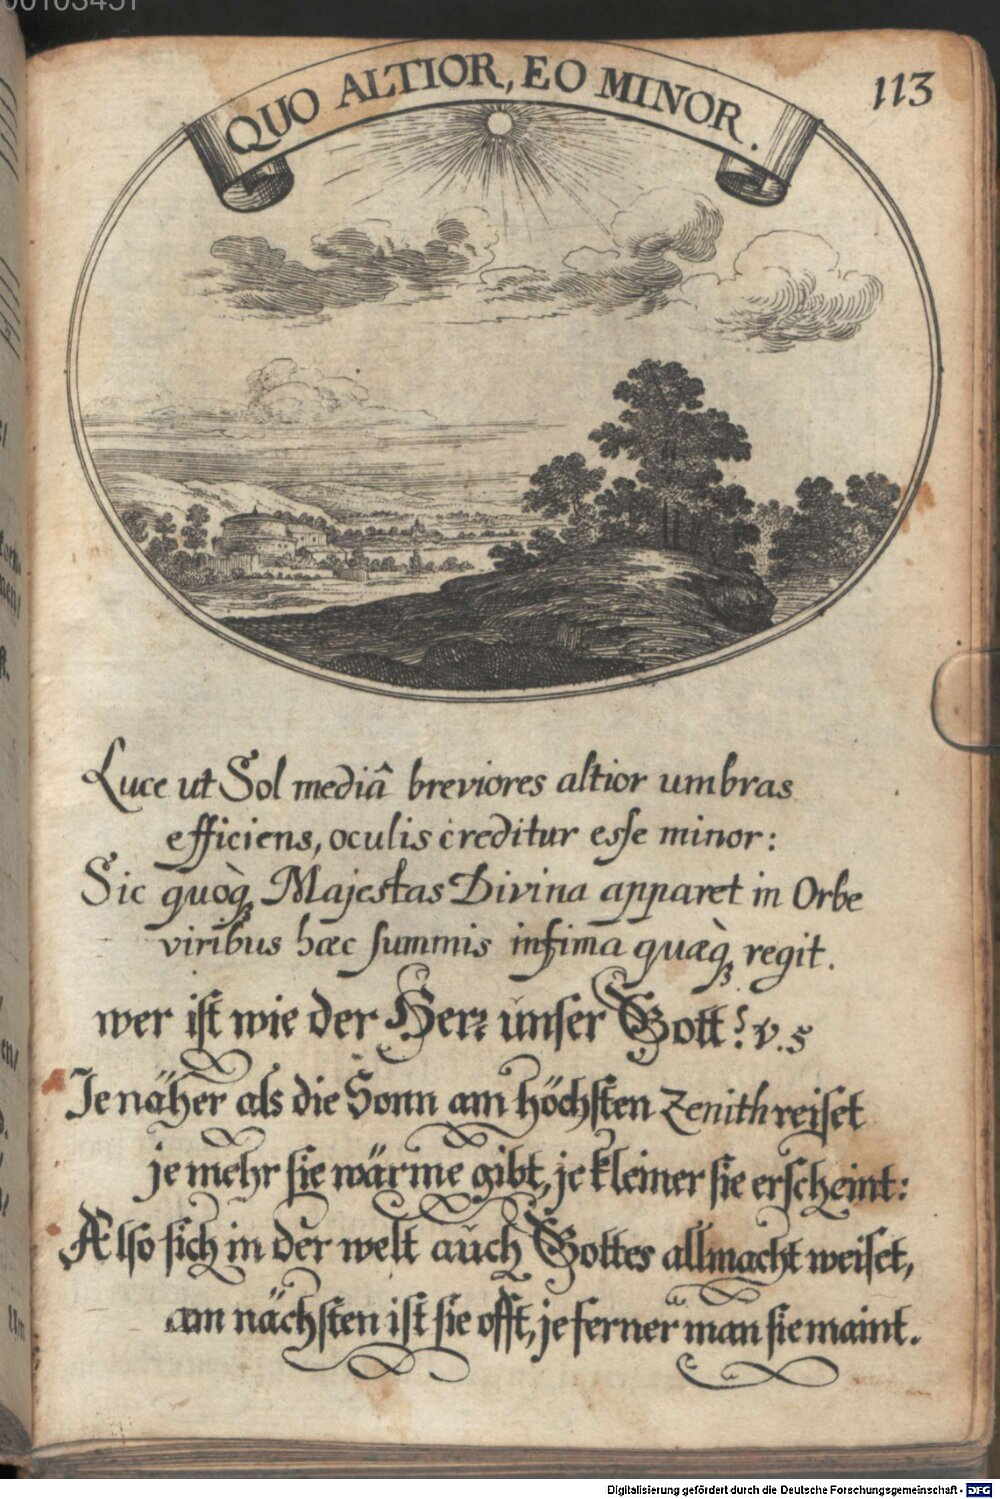 00103451
113
QUO ALTIOR, EO MINOR.
Luce ut Sol mediâ breviores altior umbras
efficiens, oculis creditur esse minor:
Sic quoq̀ꝫ Majestas Divina apparet in Orbe
viribus hæc summis infima quæq̀ꝫ regit.
wer ist wie der Herꝛ unser Gott? v. 5
Je näher als die Sonn am höchsten Zenith reiset
je mehr sie wärme gibt, je kleiner sie erscheint:
Also sich in der welt auch Gottes allmacht weiset,
am nächsten ist sie offt, je ferner man sie maint.
Digitalisierung gefördert durch die Deutsche Forschungsgemeinschaft - DFG